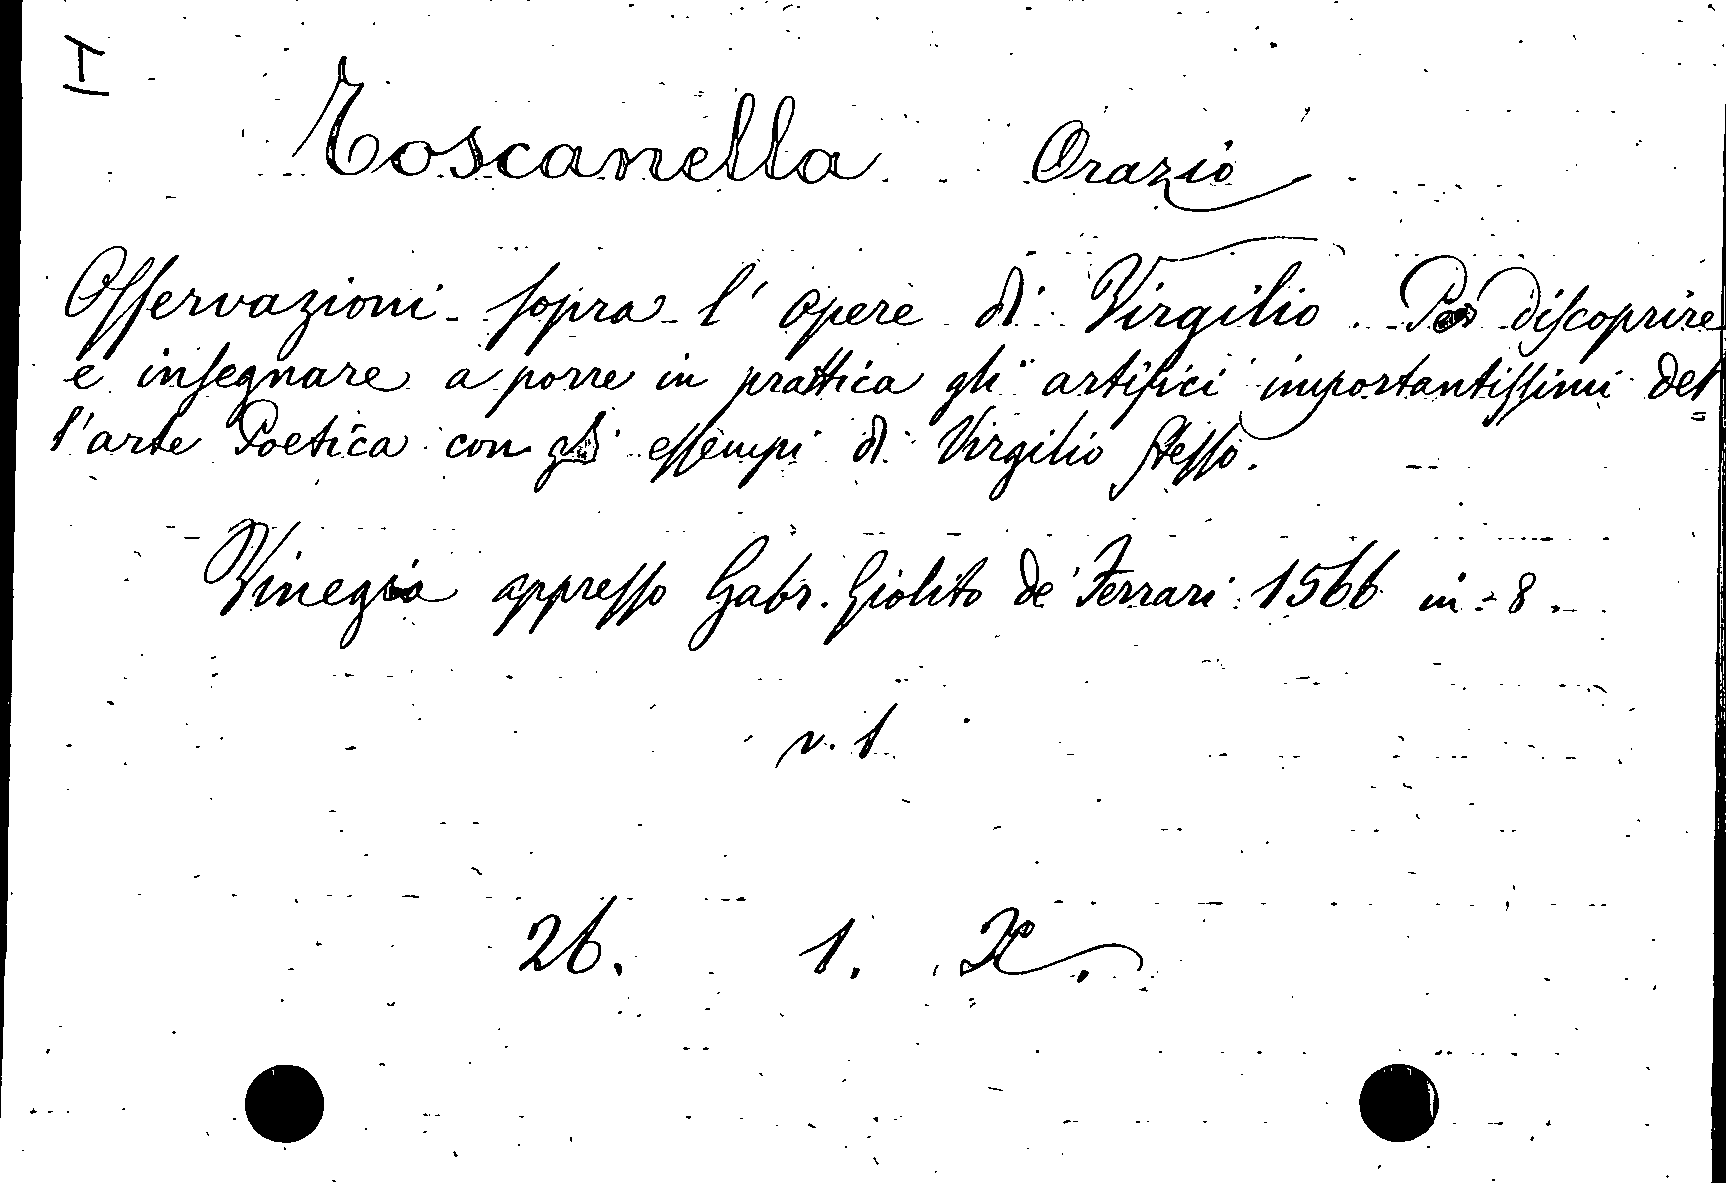 T
Toscanella Orazio
Osservazioni sopra l' opere di Virgilio. Per discoprire
e insegnare a porre in prattica gli artifici importantissimi del=
l'arte Poetica con gli essempi di Virgilio stesso.
Vinegia appresso Gabr. Giolito de' Ferrari 1566 in=8.
v. 1
26. 1. X.